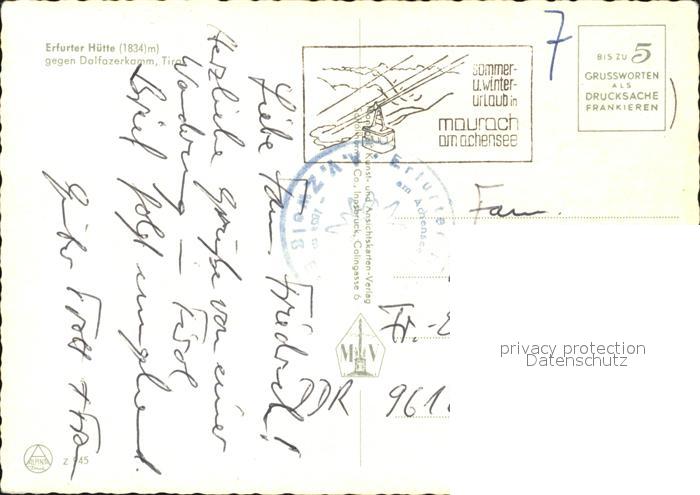 Erfurter Hütte (1834)m)
gegen Dalfazerkamm, Tirol
sommer-
u.winter-
urlaub in
maurach
am achensee
7
BIS ZU 5
GRUSSWORTEN
ALS
DRUCKSACHE
FRANKIEREN
Liebe Fam. Friedrich!
Herzliche Grüße von einer
Wanderung – Tirol
Brief folgt umgehend.
Kunst- und Ansichtskarten-Verlag
Co., Innsbruck, Colingasse 6
Erfurter
am Achensee
Fam.
Fr.-
DDR 961
M V
ALPINA
Druck
Z 945
privacy protection
Datenschutz